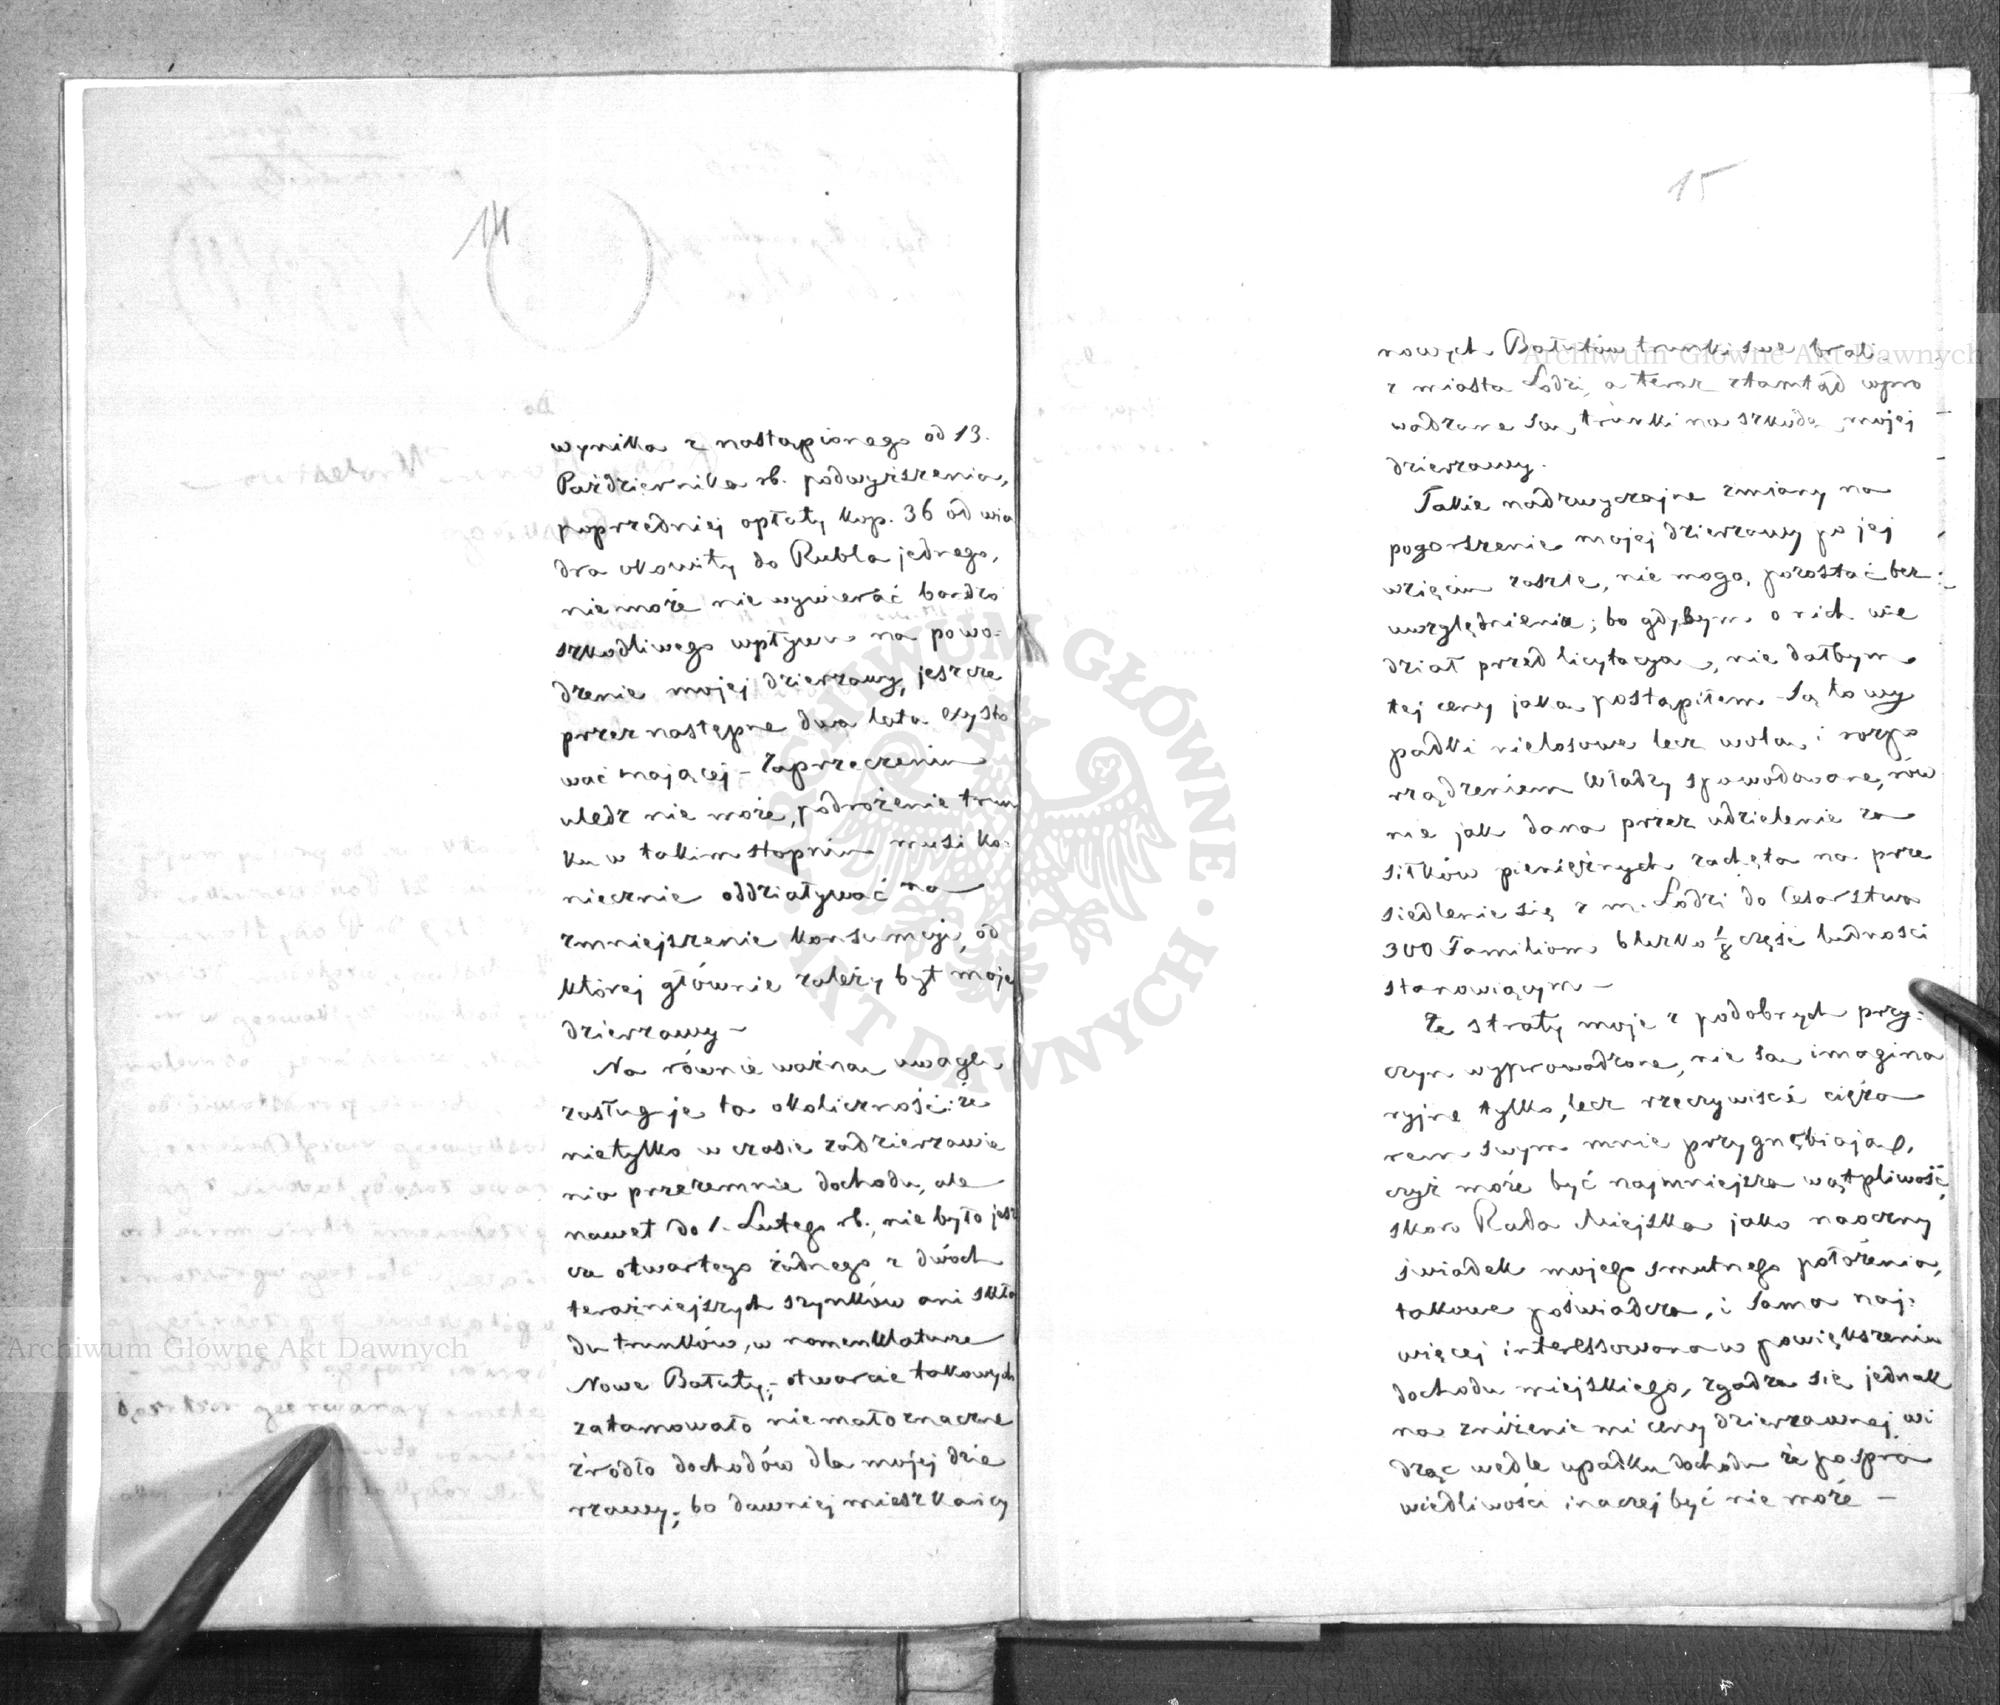 14
wynika z nastąpionego od 13.
Październike rb. podwyższenia,
poprzedniej opłaty kop. 36 od wia
dra okowity do Rubla jednego,
niemoże nie wywierać bardzo
szkodliwego wpływu na powo-
dzenie mojej dzierzawy, jeszcze
przez następne dwa lata exysto
wać mającej – Zaprzeczeniu
uledz nie może, podrożenie trun
ku w takim stopniu musi ko-
niecznie oddziaływać na
zmniejszenie konsumcji, od
której głównie zależy byt mojej
dzierzawy –
Na równie ważna uwagę
zasługuje ta okoliczność: że
nietylko w czasie zadzierzawie
nia przezemnie dochodu, ale
nawet do 1. Lutego rb., nie było jesz
cze otwartego żadnego z dwóch
teraźniejszych szynków ani skła
du trunków, w nomenklaturze
Nowe Bałuty; – otwarcie takowych
zatamowało nie mało znaczne
źródło dochodów dla mojej dzie
rzawy; bo dawniej mieszkańcy
15
nowych Bałutów trunki swe brali
z miasta Łodzi, a teraz ztamtąd wpro
wadzane są, trunki na szkodę mojej
dzierzawy.
Takie nadzwyczajne zmiany na
pogorszenie mojej dzierzawy po jej
wzięciu zaszłe, nie mogą pozostać bez
uwzględnienia; bo gdybym o nich wie
dział przed licytacyą, nie dałbym
tej ceny jaką postąpiłem – Są to wy
padki nielosowe lecz wolą i rozpo
rządzeniem Władzy spowodowane, rów
nie jak dana przez udzielenie za
siłków pieniężnych zachęta na prze
siedlenie się z m. Łodzi do Cesarstwa
300 Familiom blizko 1/8 część ludności
stanowiącym –
Że straty moje z podobnych przy-
czyn wyprowadzone, nie są imagina
ryjne tylko, lecz rzeczywiście cięża
rem swym mnie przygnębiają,
czyż może być najmniejsza wątpliwość,
skoro Rada Miejska jako naoczny
świadek mojego smutnego położenia,
takowe poświadcza, i sama naj-
więcej interessowana w powiększeniu
dochodu miejskiego, zgadza się jednak
na zniżenie mi ceny dzierzawnej wi
dząc wedle upadku dochodu że po spra
wiedliwości inaczej być nie może –
Archiwum Główne Akt Dawnych
Archiwum Główne Akt Dawnych
ARCHIWUM GŁÓWNE · AKT DAWNYCH ·